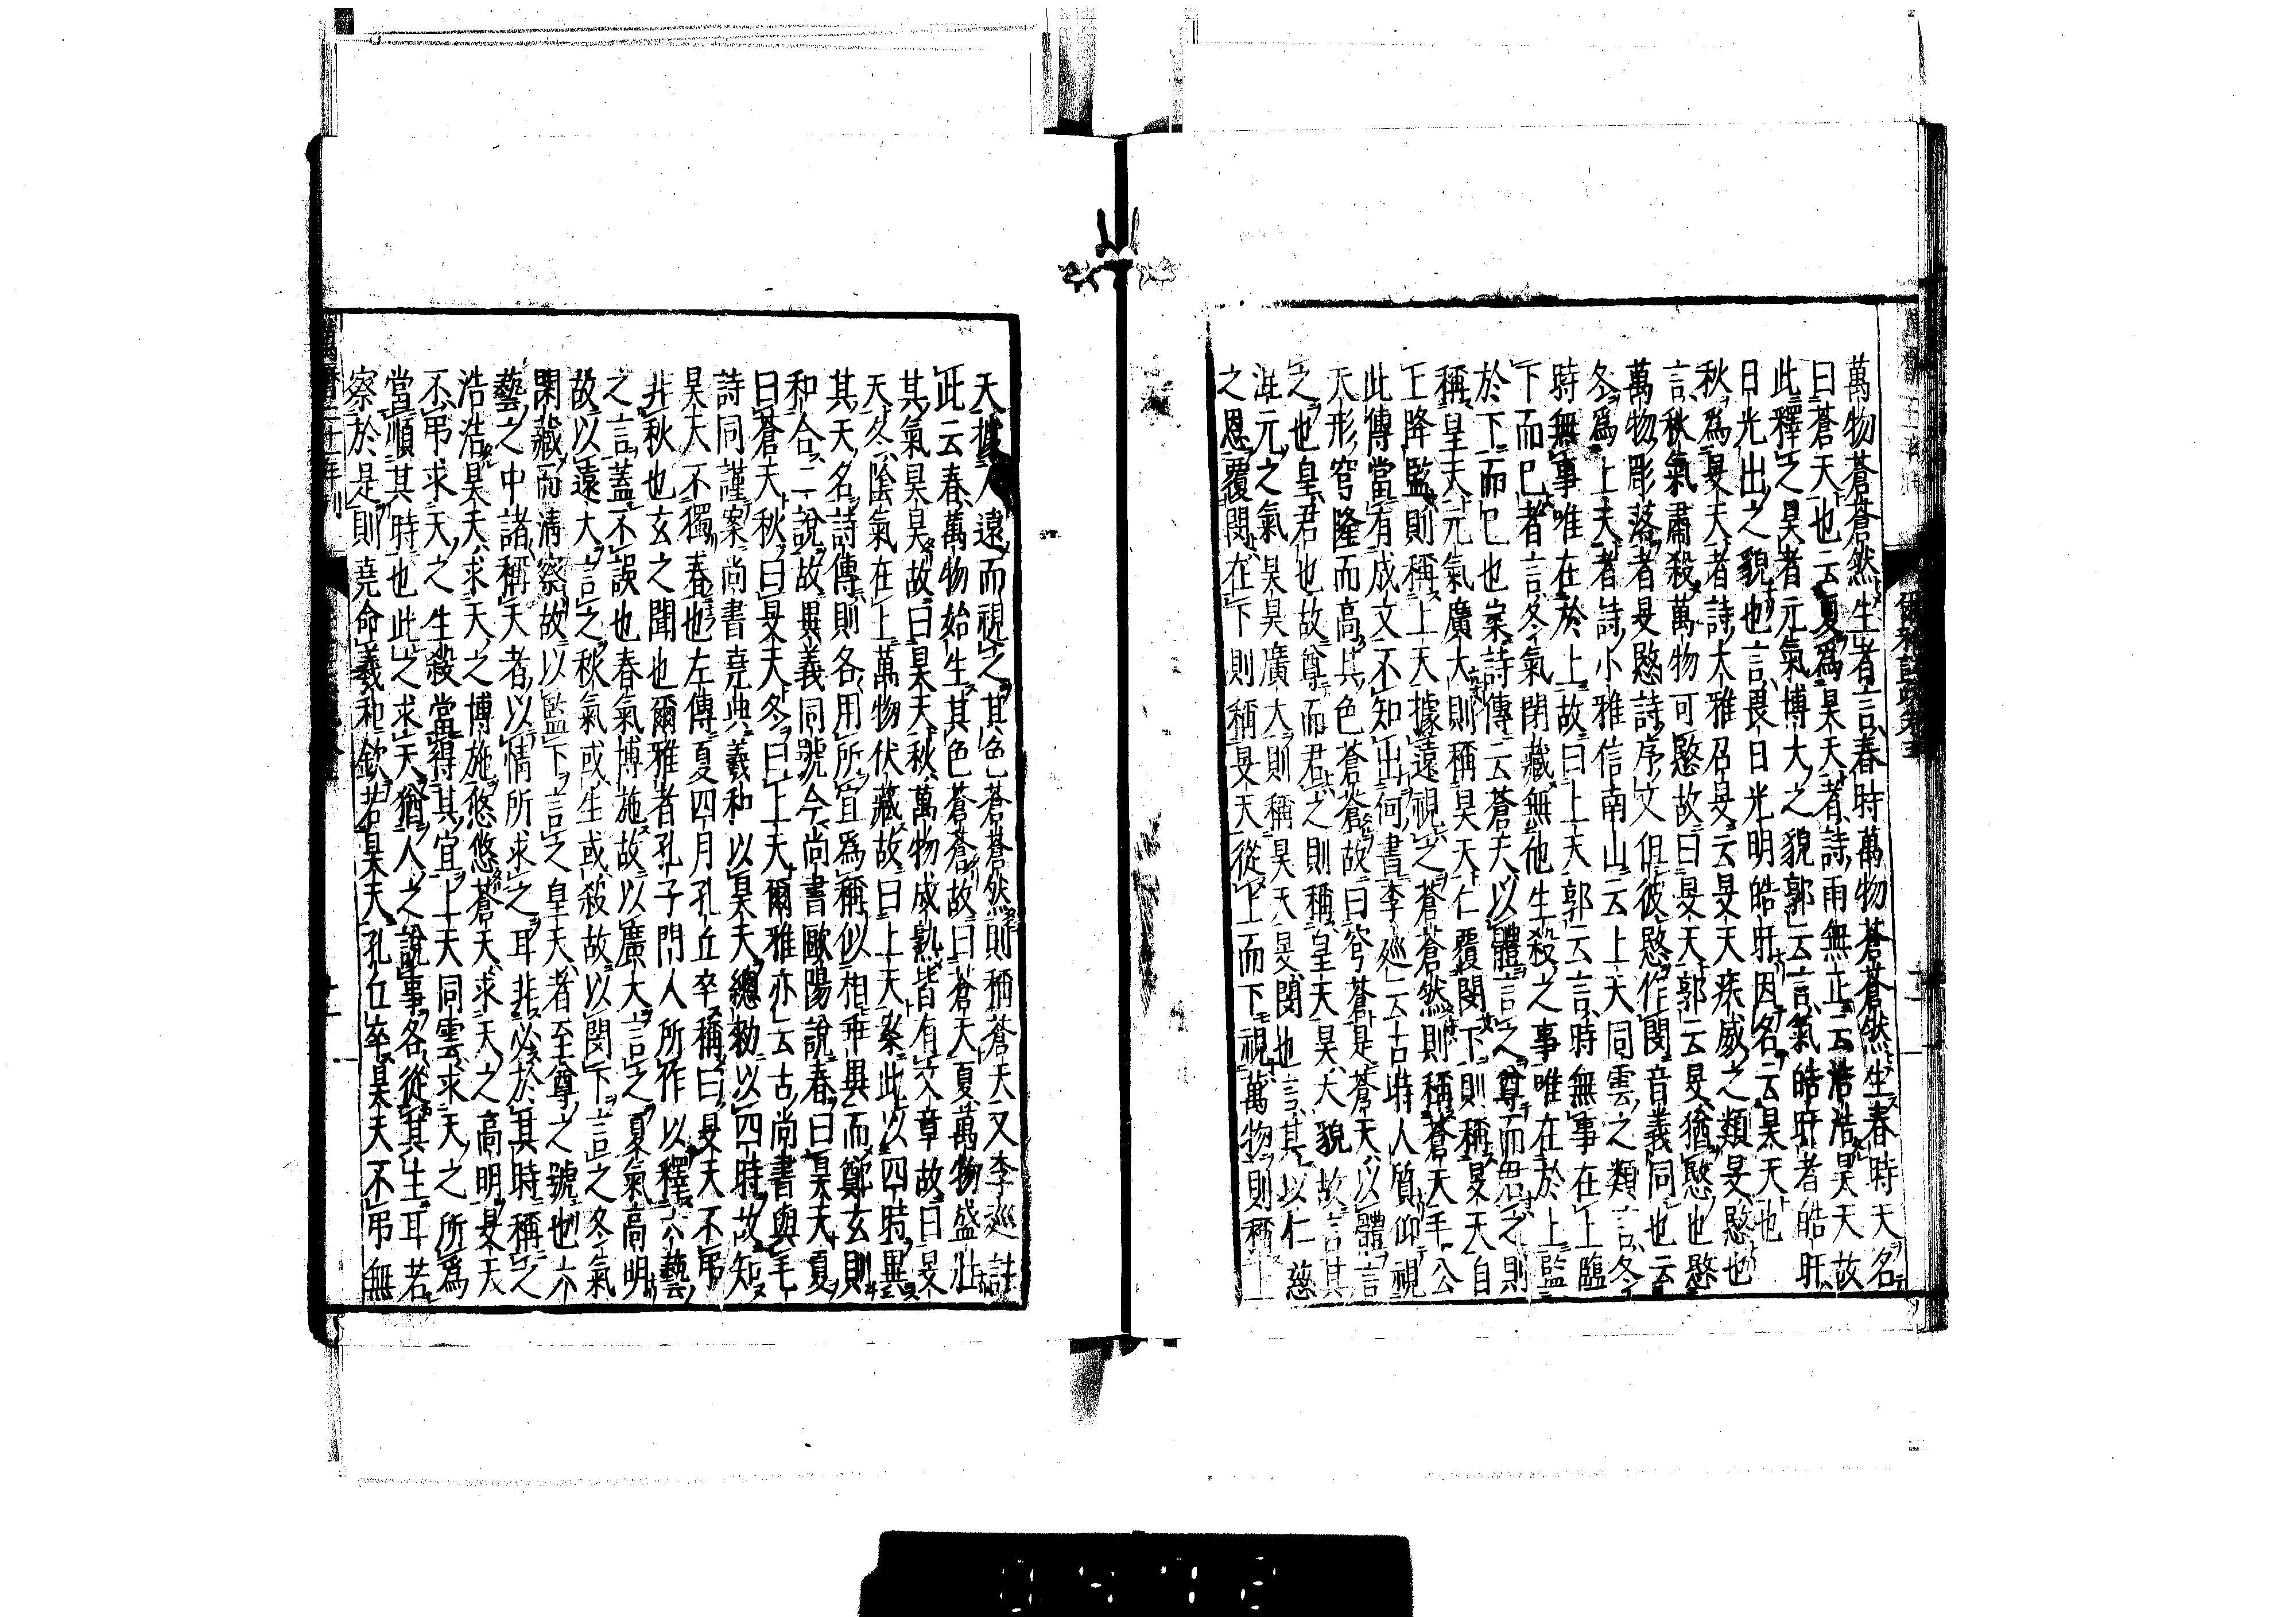 萬物蒼蒼然生者言春時萬物蒼蒼然生春時天名
曰蒼天也云夏爲昊天者詩雨無正云浩浩昊天故
此釋之昊者元氣博大之貌郭云言氣皓旰者皓旰
日光出之貌也言畏日光明皓旰因名云昊天也
秋爲旻天者詩大雅召旻云旻天疾威之類旻愍也
言秋氣肅殺萬物可愍故曰旻天郭云旻猶愍也愍
萬物彫落者旻愍詩序文但彼愍作閔音義同也云
冬爲上天者詩小雅信南山云上天同雲之類言冬
時無事唯在於上故曰上天郭云言時無事在上臨
下而已者言冬氣閉藏無他生殺之事唯在於上監
於下而已也案詩傳云蒼天以體言之尊而君之則
稱皇天元氣廣大則稱昊天仁覆閔下則稱旻天自
上降監則稱上天據遠視之蒼蒼然則稱蒼天毛公
此傳當有成文不知出何書李巡云古時人質仰視
天形穹隆而高其色蒼蒼故曰穹蒼是蒼天以體言
之也皇君也故尊而君之則稱皇天昊大貌故言其
混元之氣昊昊廣大則稱昊天旻閔也言其以仁慈
之恩覆閔在下則稱旻天從上而下視萬物則稱上
天據人遠而視之其色蒼蒼然則稱蒼天又李巡註
此云春萬物始生其色蒼蒼故曰蒼天夏萬物盛壯
其氣昊昊故曰昊天秋萬物成熟皆有文章故曰旻
天冬陰氣在上萬物伏藏故曰上天案此以四時異
其天名詩傳則各用所宜爲稱似相乖異而鄭玄則
和合二說故異義同號今尚書歐陽說春曰昊天夏
曰蒼天秋曰旻天冬曰上天爾雅亦云古尚書與毛
詩同謹案尚書堯典羲和以昊天總勑以四時故知
昊天不獨春也左傳夏四月孔丘卒稱曰旻天不弔
非秋也玄之聞也爾雅者孔子門人所作以釋六藝
之言蓋不誤也春氣博施故以廣大言之夏氣高明
故以遠大言之秋氣或生或殺故以閔下言之冬氣
閉藏而清察故以監下言之皇天者至尊之號也六
藝之中諸稱天者以情所求之耳非必於其時稱之
浩浩昊天求天之博施悠悠蒼天求天之高明旻天
不弔求天之生殺當得其宜上天同雲求天之所爲
當順其時也此之求天猶人之說事各從其生耳若
察於是則堯命羲和欽若昊天孔丘卒昊天不弔無
爾雅註疏卷
萬曆二十一年刊